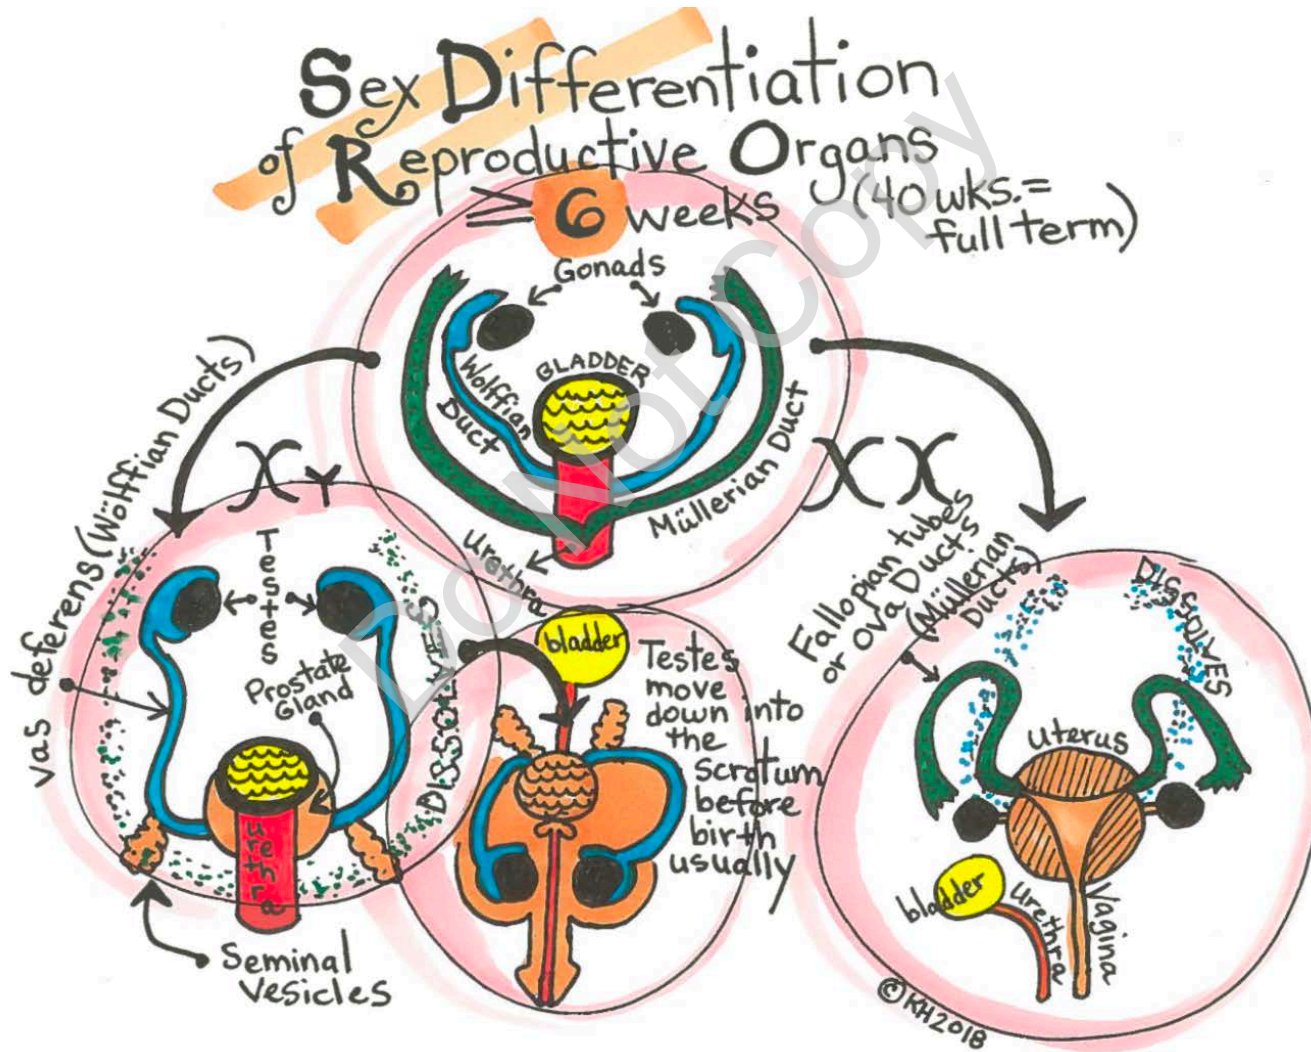 Sex Differentiation
of Reproductive Organs
≥ 6 weeks
(40 wks. =
full term)
Gonads
BLADDER
Wolffian
Duct
Müllerian Duct
urethra
vas deferens (Wölffian Ducts)
XY
Testes
DISSOLVES
Prostate
Gland
urethra
Seminal
Vesicles
bladder
Testes
move
down into
the
scrotum
before
birth
usually
XX
Fallopian tubes
or Ova Ducts
(Müllerian
Ducts)
DISSOLVES
uterus
bladder
urethra
Vagina
©KH2018
Do Not Copy